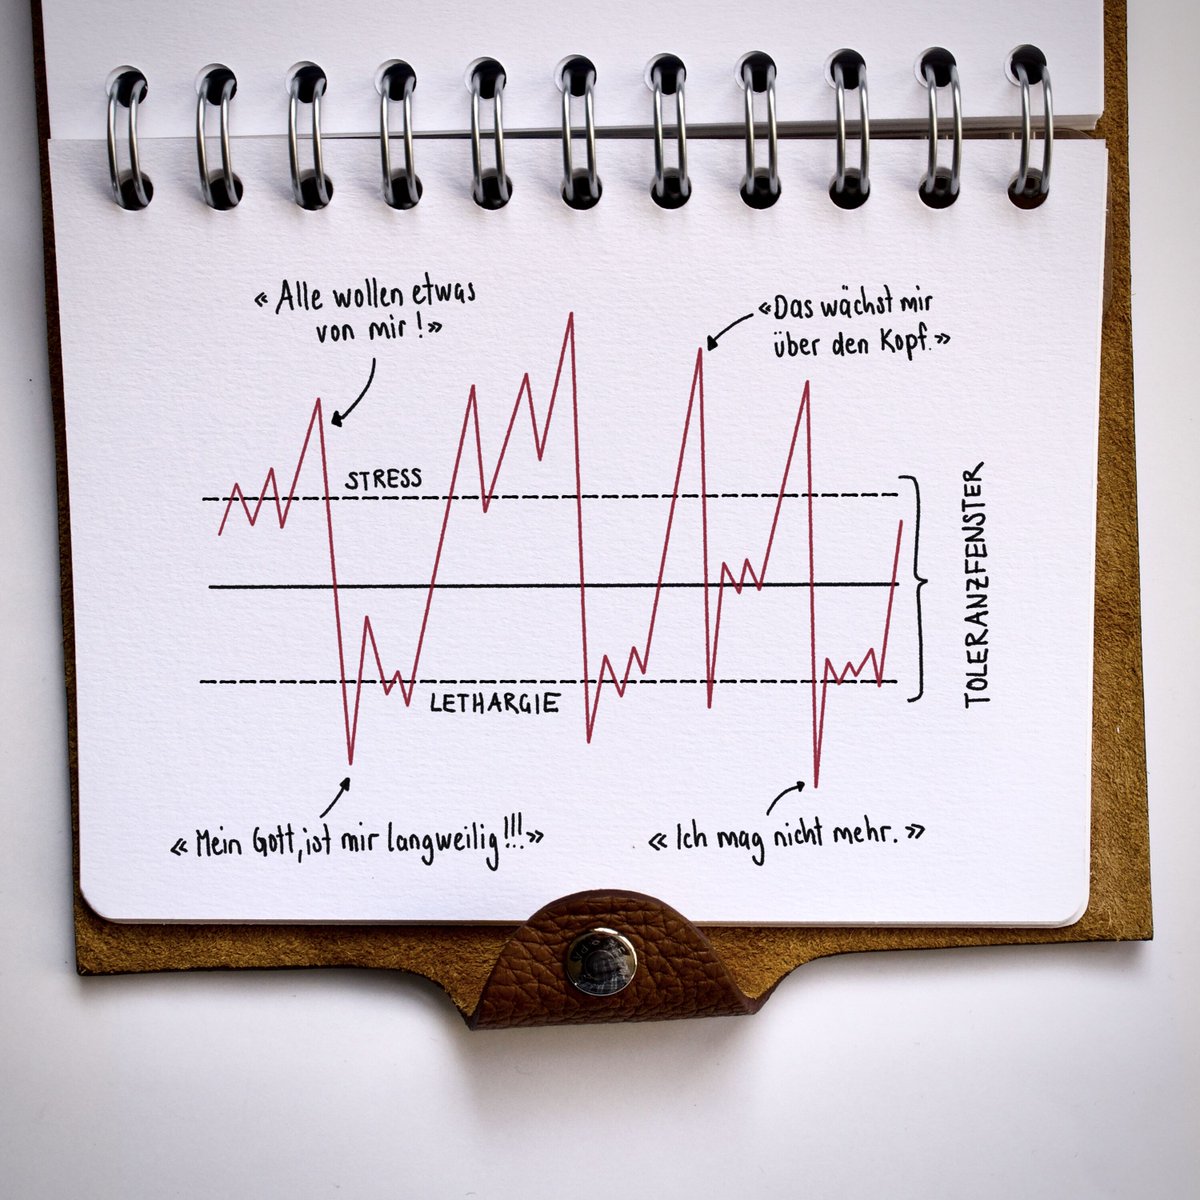 « Alle wollen etwas
von mir! »
«Das wächst mir
über den Kopf.»
STRESS
TOLERANZFENSTER
LETHARGIE
« Mein Gott, ist mir langweilig!!!»
« Ich mag nicht mehr. »